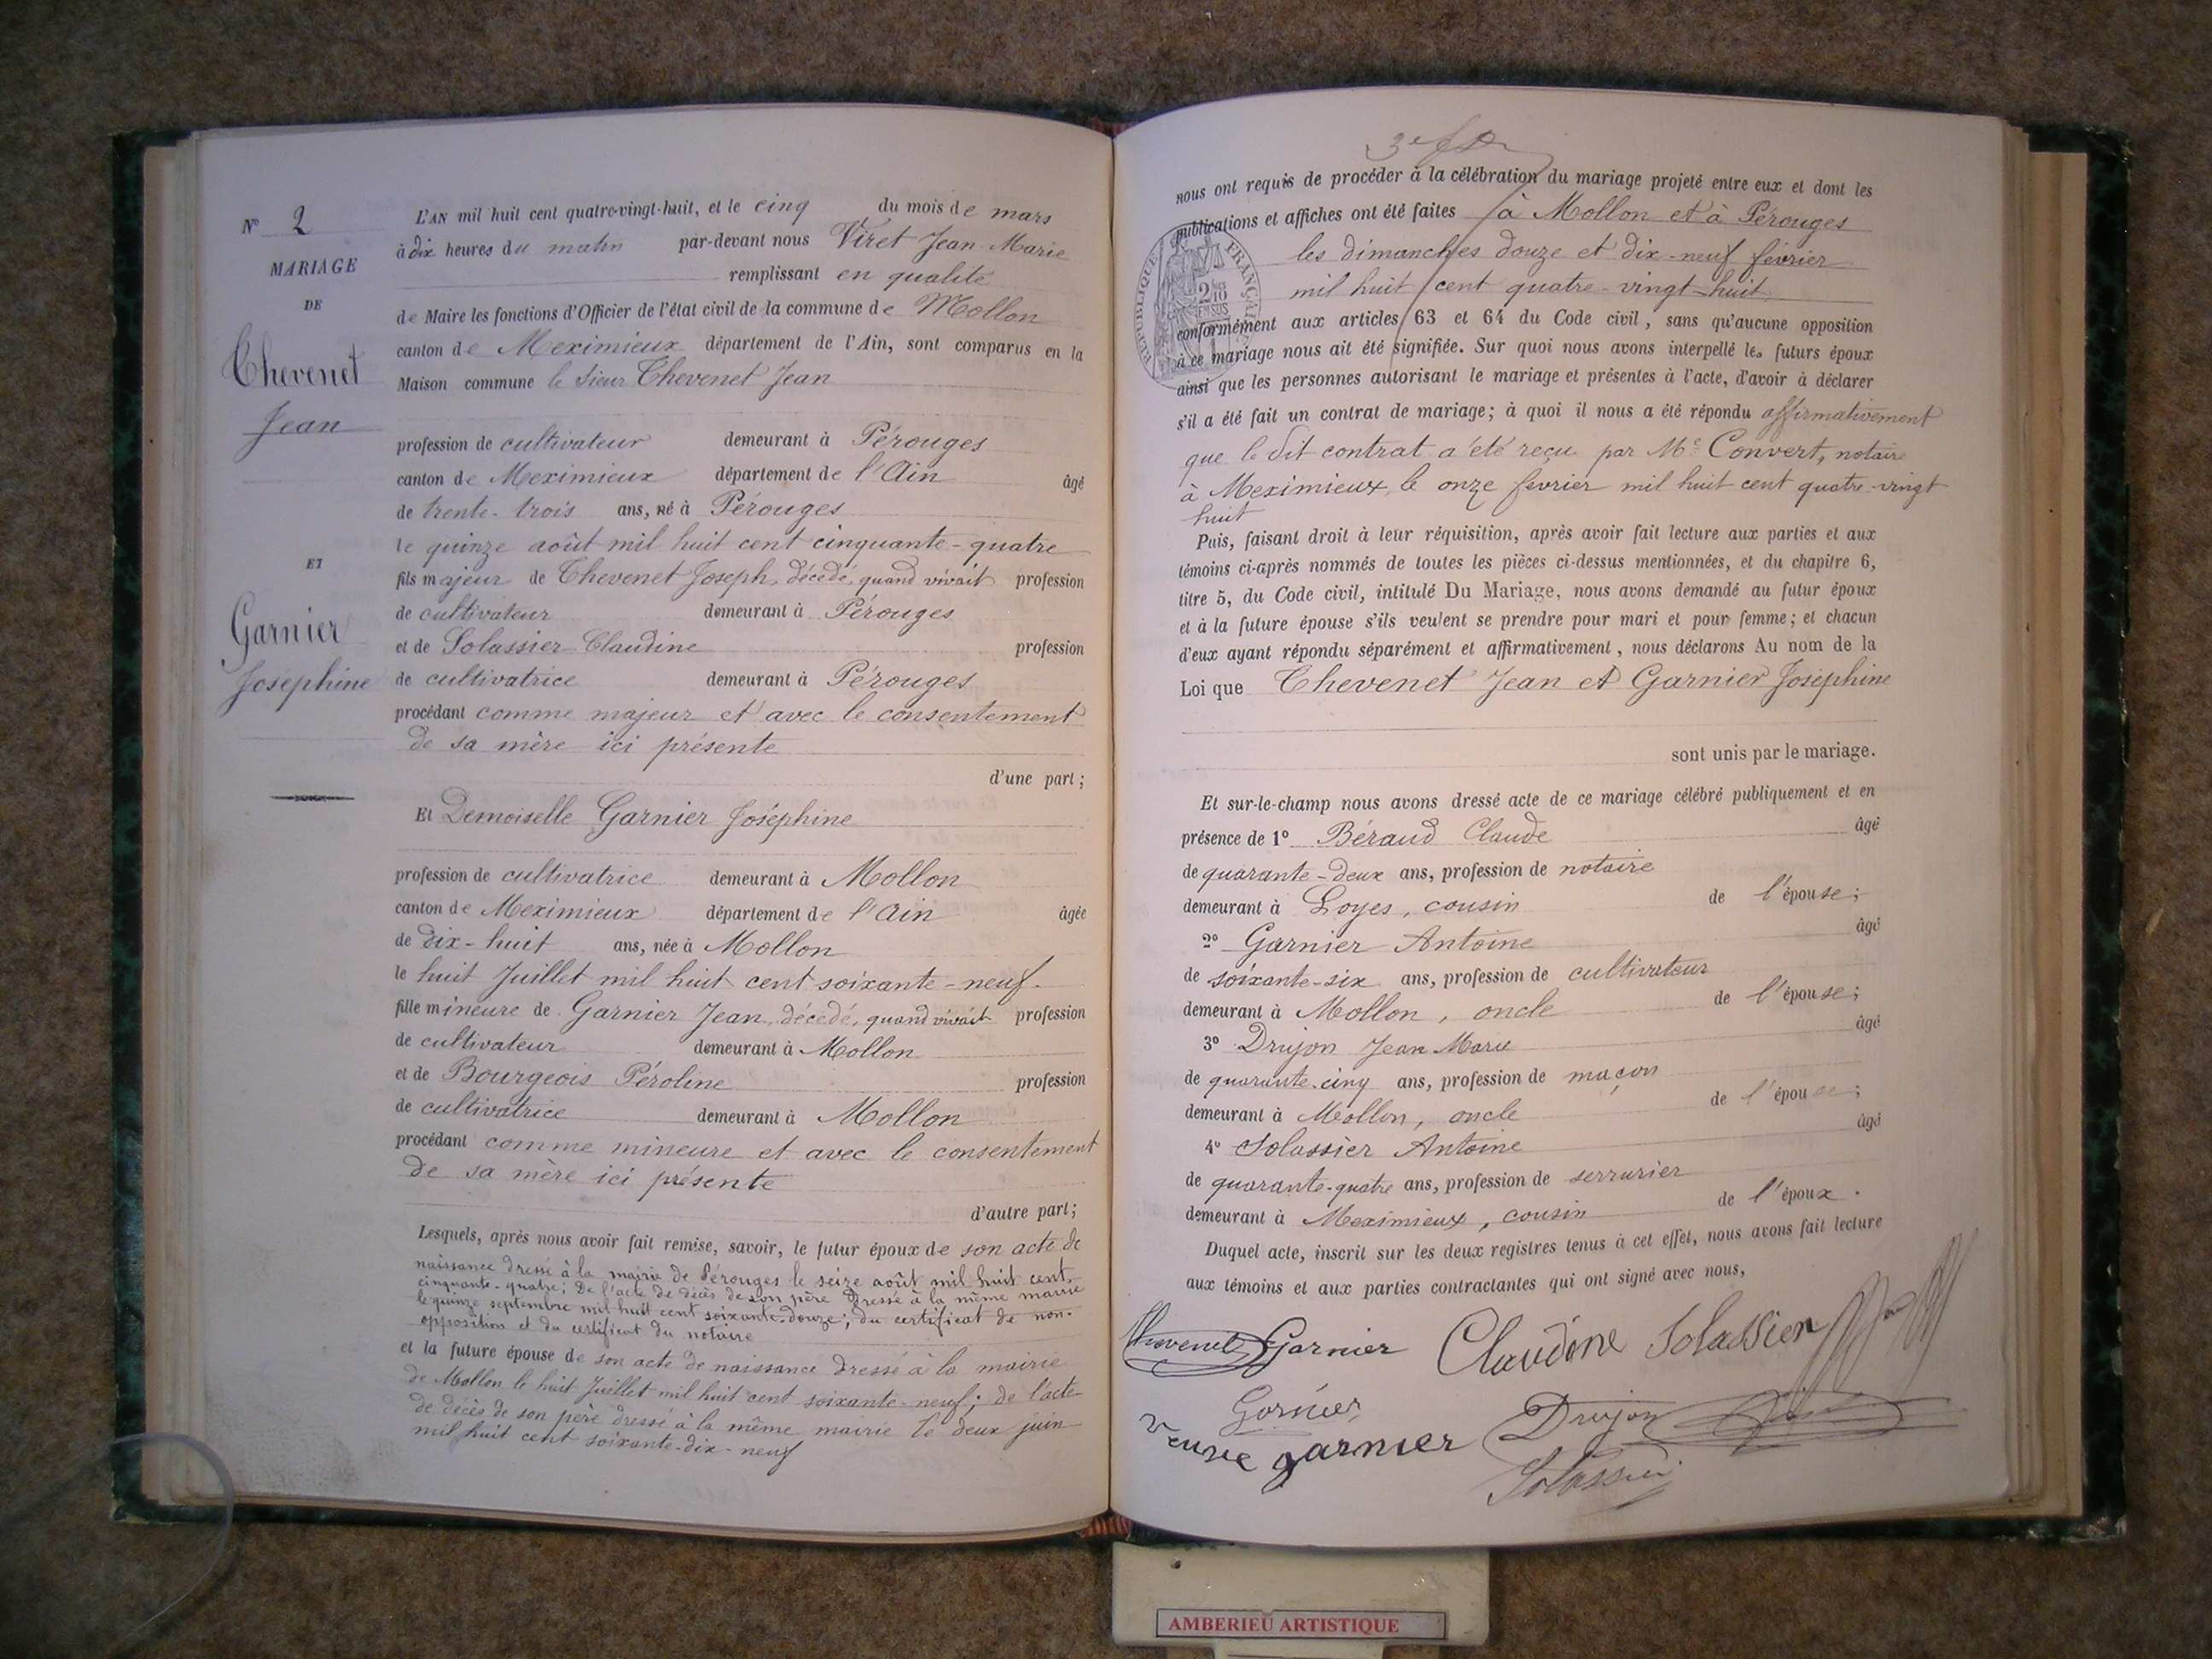 N° 2
MARIAGE
DE
Chevenet
Jean
ET
Garnier
Joséphine
L'AN mil huit cent quatre-vingt-huit, et le cinq du mois de mars
à dix heures du matin par-devant nous Viret Jean-Marie
remplissant en qualité
de Maire les fonctions d'Officier de l'état civil de la commune de Mollon
canton de Meximieux département de l'Ain, sont comparus en la
Maison commune le sieur Chevenet Jean
profession de cultivateur demeurant à Pérouges
canton de Meximieux département de l'Ain âgé
de trente-trois ans, né à Pérouges
le quinze août mil huit cent cinquante-quatre
fils majeur de Chevenet Joseph, décédé, quand vivait profession
de cultivateur demeurant à Pérouges
et de Solassier Claudine profession
de cultivatrice demeurant à Pérouges
procédant comme majeur et avec le consentement
de sa mère ici présente
d'une part;
Et Demoiselle Garnier Joséphine
profession de cultivatrice demeurant à Mollon
canton de Meximieux département de l'Ain âgée
de dix-huit ans, née à Mollon
le huit Juillet mil huit cent soixante-neuf.
fille mineure de Garnier Jean, décédé, quand vivait profession
de cultivateur demeurant à Mollon
et de Bourgeois Péroline profession
de cultivatrice demeurant à Mollon
procédant comme mineure et avec le consentement
de sa mère ici présente
d'autre part;
Lesquels, après nous avoir fait remise, savoir, le futur époux de son acte de
naissance dressé à la mairie de Pérouges le seize août mil huit cent
cinquante-quatre; de l'acte de décès de son père dressé à la même mairie
le quinze septembre mil huit cent soixante-douze; du certificat de non-
opposition et du certificat du notaire
et la future épouse de son acte de naissance dressé à la mairie
de Mollon le huit Juillet mil huit cent soixante-neuf; de l'acte
de décès de son père dressé à la même mairie le deux juin
mil huit cent soixante-dix-neuf
3e f
nous ont requis de procéder à la célébration du mariage projeté entre eux et dont les
publications et affiches ont été faites à Mollon et à Pérouges
les dimanches douze et dix-neuf février
mil huit cent quatre-vingt-huit
conformément aux articles 63 et 64 du Code civil, sans qu'aucune opposition
à ce mariage nous ait été signifiée. Sur quoi nous avons interpellé les futurs époux
ainsi que les personnes autorisant le mariage et présentes à l'acte, d'avoir à déclarer
s'il a été fait un contrat de mariage; à quoi il nous a été répondu affirmativement
que le dit contrat a été reçu par Me Convert, notaire
à Meximieux, le onze février mil huit cent quatre-vingt
huit
Puis, faisant droit à leur réquisition, après avoir fait lecture aux parties et aux
témoins ci-après nommés de toutes les pièces ci-dessus mentionnées, et du chapitre 6,
titre 5, du Code civil, intitulé Du Mariage, nous avons demandé au futur époux
et à la future épouse s'ils veulent se prendre pour mari et pour femme; et chacun
d'eux ayant répondu séparément et affirmativement, nous déclarons Au nom de la
Loi que Chevenet Jean et Garnier Joséphine
sont unis par le mariage.
Et sur-le-champ nous avons dressé acte de ce mariage célébré publiquement et en
présence de 1° Béraud Claude âgé
de quarante-deux ans, profession de notaire
demeurant à Loyes, cousin de l'épouse;
2° Garnier Antoine âgé
de soixante-six ans, profession de cultivateur
demeurant à Mollon, oncle de l'épouse;
3° Drujon Jean Marie âgé
de quarante-cinq ans, profession de maçon
demeurant à Mollon, oncle de l'épouse;
4° Solassier Antoine âgé
de quarante-quatre ans, profession de serrurier
demeurant à Meximieux, cousin de l'époux.
Duquel acte, inscrit sur les deux registres tenus à cet effet, nous avons fait lecture
aux témoins et aux parties contractantes qui ont signé avec nous,
Chevenet Garnier Claudine Solassier
Garnier Drujon
veuve garnier
Solassier
RÉPUBLIQUE FRANÇAISE
2/10 EN SUS
AMBERIEU ARTISTIQUE